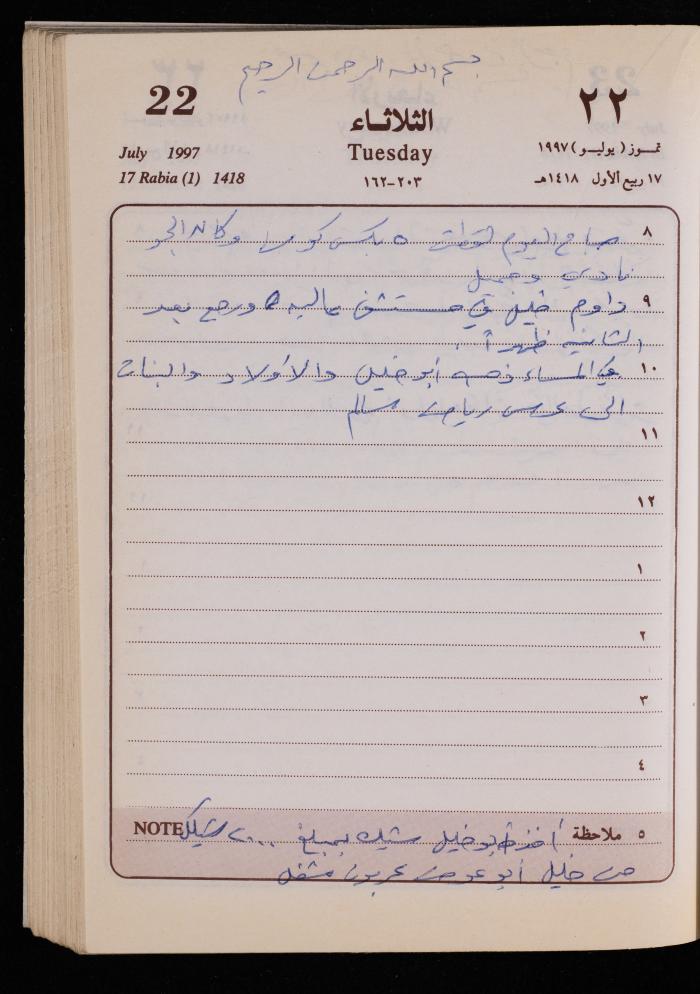 بسم الله الرحمن الرحيم
22
٢٢
الثلاثاء
July 1997
Tuesday
تموز (يوليو) ١٩٩٧
17 Rabia (1) 1418
٢٠٣-١٦٢
١٧ ربيع الأول ١٤١٨هـ
٨ صباح اليوم لقطت ٥ بكس كوسا وكان الجو
نادي وجميل
٩ داوم خليل في مستشفى عاليه ورجع بعد
الثانية ظهراً.
١٠ في المساء ذهب أبو خليل والأولاد والبنات
الى عرس رياض سالم
١١
١٢
١
٢
٣
٤
NOTE ٥ ملاحظة أخذ أبو خليل شيك بمبلغ ٢٠٠٠ شيكل
من خليل أبو عوض عربون مشغل